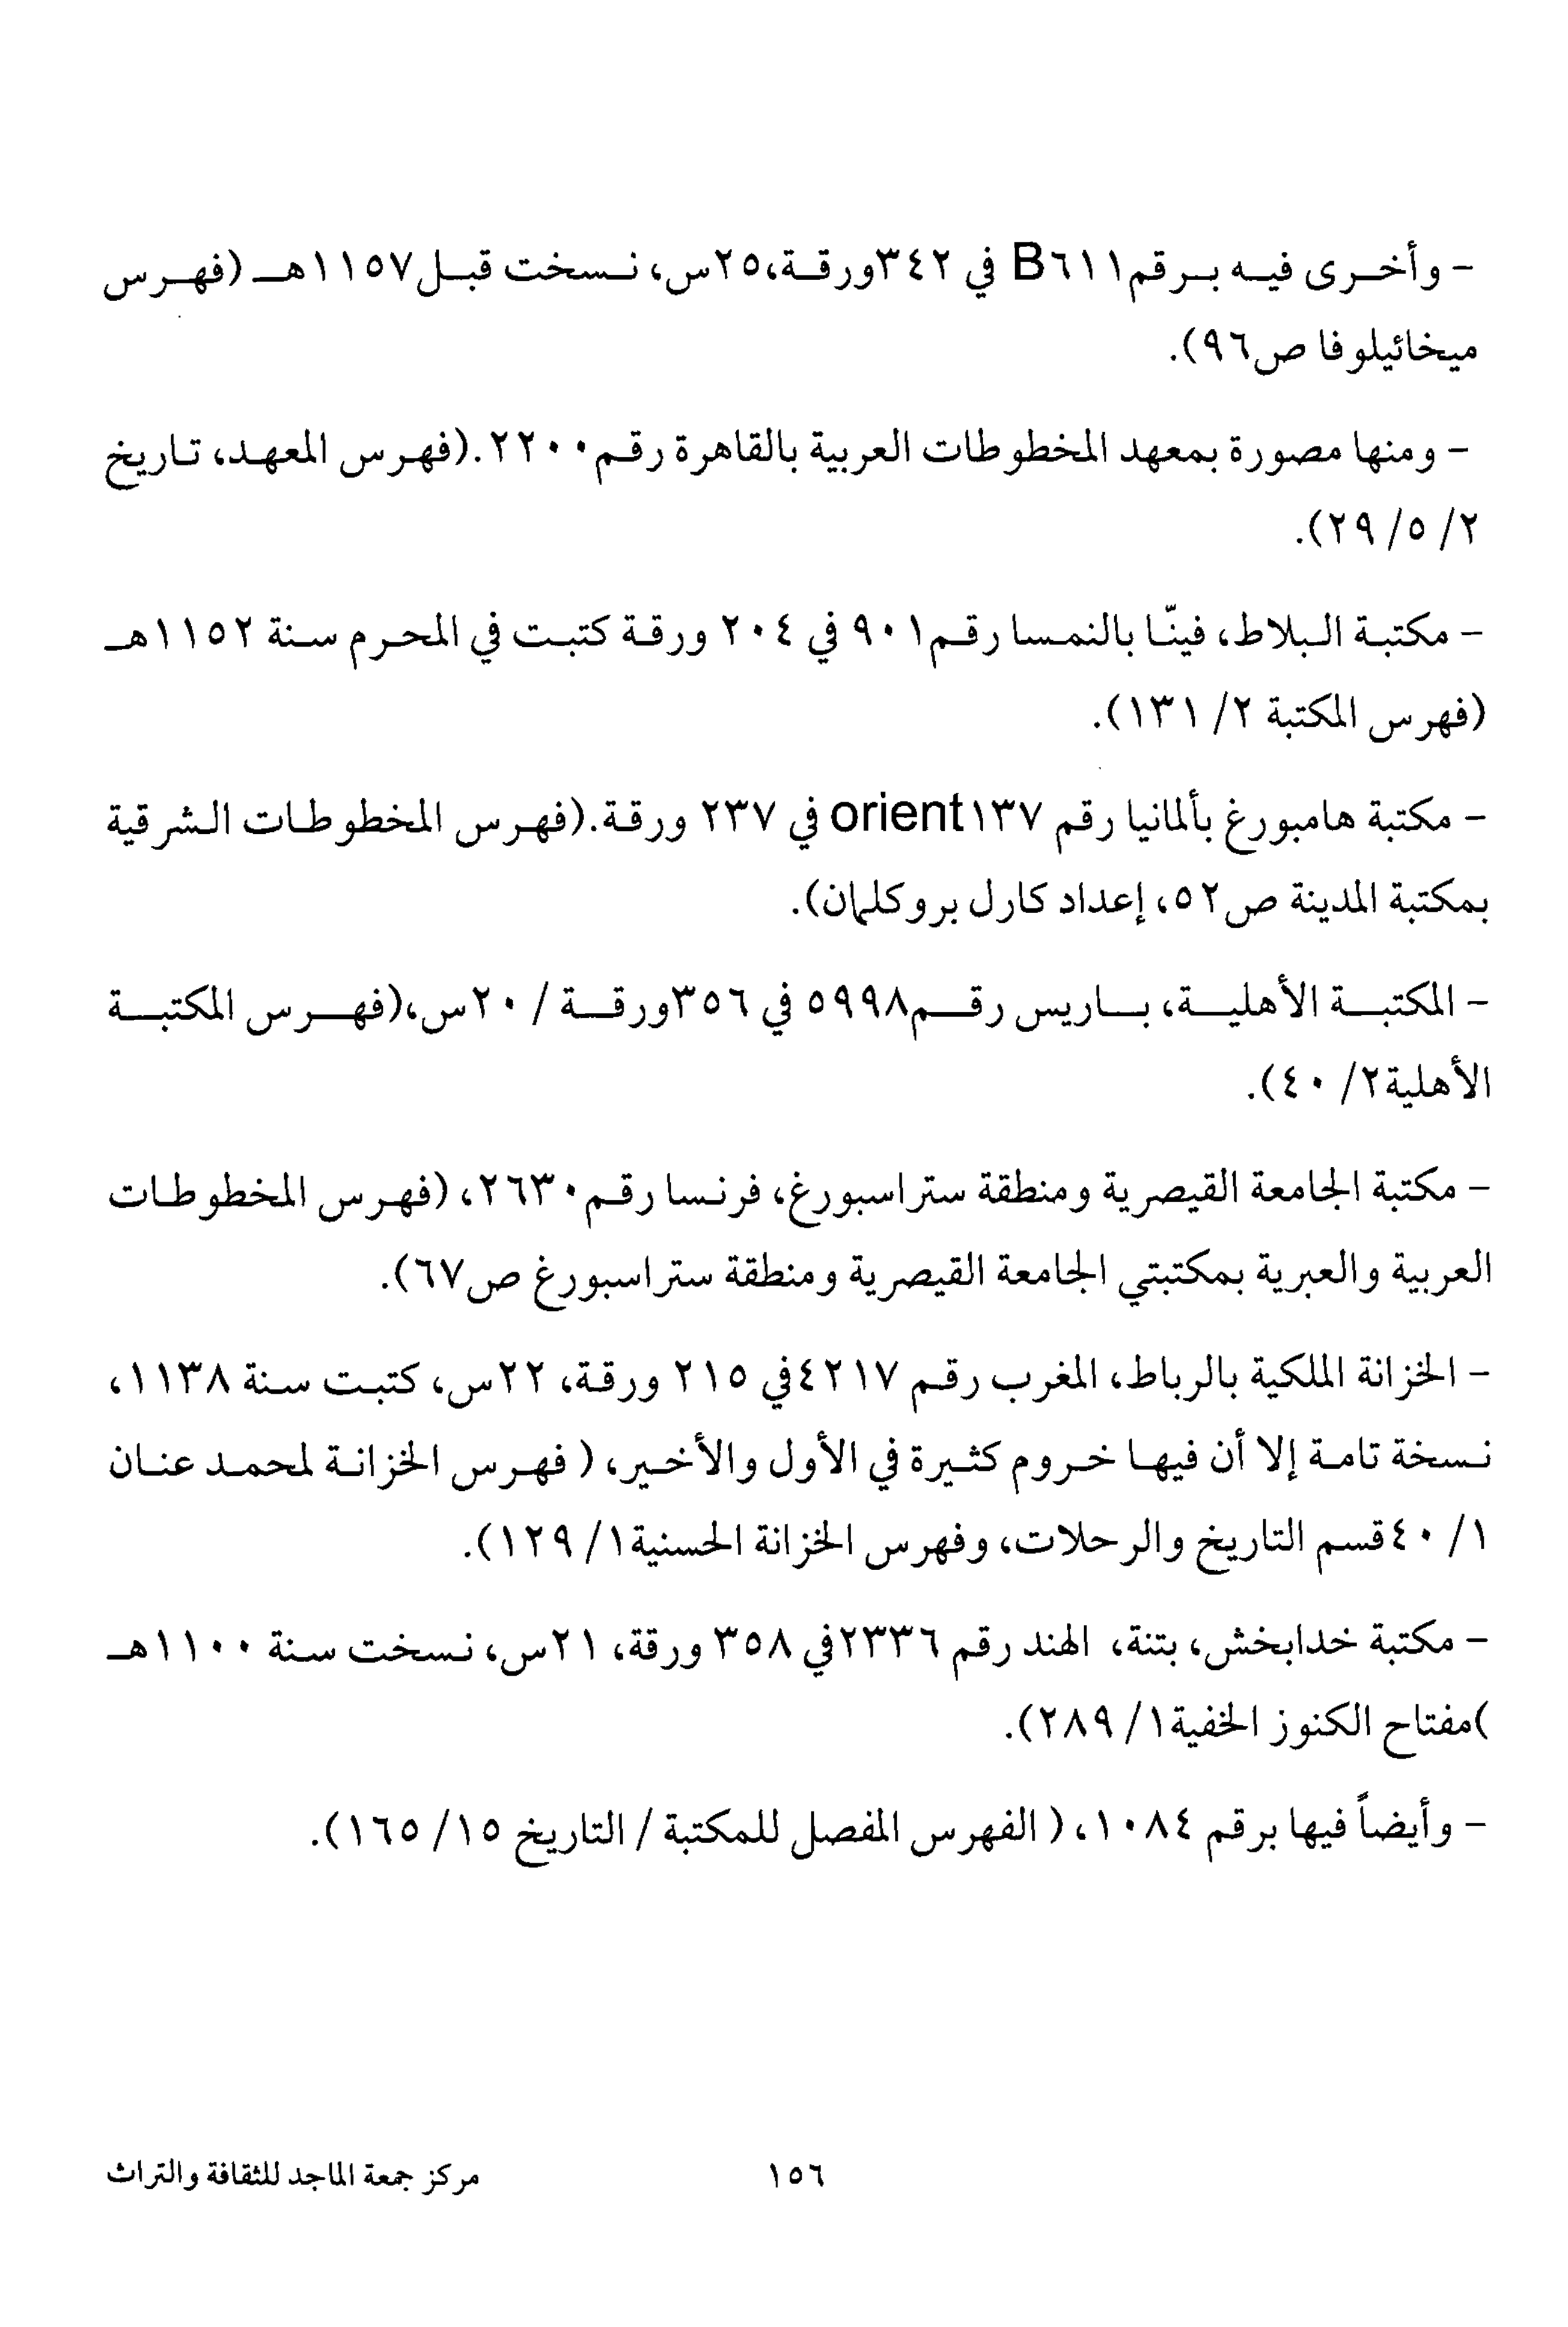 - وأخرى فيه برقم B٦١١ في ٣٤٢ورقة،٢٥س، نسخت قبل١١٥٧هـ (فهرس
ميخائيلوفا ص٩٦).
- ومنها مصورة بمعهد المخطوطات العربية بالقاهرة رقم٢٢٠٠.(فهرس المعهد، تاريخ
٢/ ٥/ ٢٩).
- مكتبة البلاط، فينّا بالنمسا رقم٩٠١ في ٢٠٤ ورقة كتبت في المحرم سنة ١١٥٢هـ
(فهرس المكتبة ٢/ ١٣١).
- مكتبة هامبورغ بألمانيا رقم orient١٣٧ في ٢٣٧ ورقة.(فهرس المخطوطات الشرقية
بمكتبة المدينة ص٥٢، إعداد كارل بروكلمان).
- المكتبة الأهلية، باريس رقم٥٩٩٨ في ٣٥٦ورقة / ٢٠س،(فهرس المكتبة
الأهلية٢/ ٤٠).
- مكتبة الجامعة القيصرية ومنطقة ستراسبورغ، فرنسا رقم٢٦٣٠، (فهرس المخطوطات
العربية والعبرية بمكتبتي الجامعة القيصرية ومنطقة ستراسبورغ ص٦٧).
- الخزانة الملكية بالرباط، المغرب رقم ٤٢١٧في ٢١٥ ورقة، ٢٢س، كتبت سنة ١١٣٨،
نسخة تامة إلا أن فيها خروم كثيرة في الأول والأخير، ( فهرس الخزانة لمحمد عنان
١/ ٤٠قسم التاريخ والرحلات، وفهرس الخزانة الحسنية١/ ١٢٩).
- مكتبة خدابخش، بتنة، الهند رقم ٢٣٣٦في ٣٥٨ ورقة، ٢١س، نسخت سنة ١١٠٠هـ
)مفتاح الكنوز الخفية١/ ٢٨٩).
- وأيضاً فيها برقم ١٠٨٤، ( الفهرس المفصل للمكتبة / التاريخ ١٥/ ١٦٥).
١٥٦
مركز جمعة الماجد للثقافة والتراث